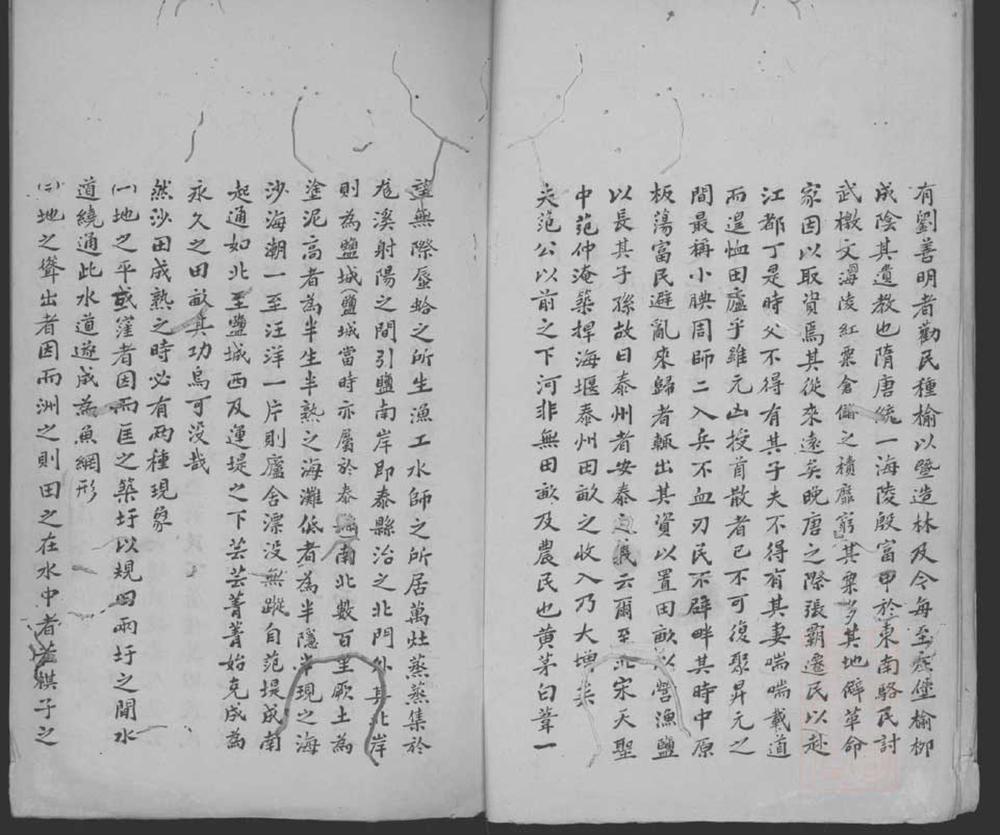 有劉善明者勸民種榆以暨造林及今每至堡榆柳
成陰其遺教也隋唐統一海陵殷富甲於東南駱民討
武檄文謂海陵紅粟倉儲之積靡窮其粟多其地僻革命
家因以取資焉其從來遠矣晚唐之際張霸遷民以赴
江都丁是時父不得有其子夫不得有其妻喘喘載道
而遑恤田廬乎雖元凶授首散者已不可復聚昇元之
間最稱小腆周師二入兵不血刃民不辟畔其時中原
板蕩富民避亂來歸者輒出其資以置田畝以營漁鹽
以長其子孫故曰泰州者安泰之義云爾至北宋天聖
中范仲淹築捍海堰泰州田畝之收入乃大增矣
夫范公以前之下河非無田畝及農民也黄茅白葦一
望無際蜃蛤之所生漁工水師之所居萬灶蒸蒸集於
尨溪射陽之間引鹽南岸即泰縣治之北門外其北岸
則為鹽城鹽城當時亦屬於泰南北數百里厥土為
塗泥高者為半生半熟之海灘低者為半隱半現之海
沙海潮一至汪洋一片則廬舍漂没無蹤自范堤成南
起通如北至鹽城西及運堤之下芸芸菁菁始克成為
永久之田畝其功烏可没哉
然沙田成熟之時必有兩種現象
㈠地之平或窪者因而匡之築圩以規田兩圩之間水
道繞通此水道遂成為魚網形
㈡地之聳出者因而洲之則田之在水中者若棋子之